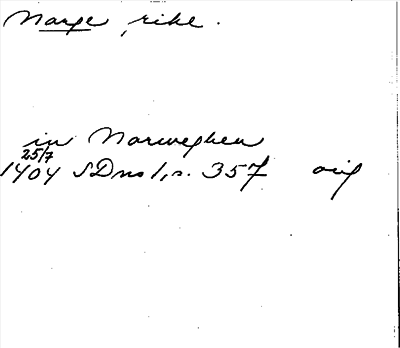 Norge, rike.
in Norweghen
25/7
1404 SDns 1, s. 357 orig